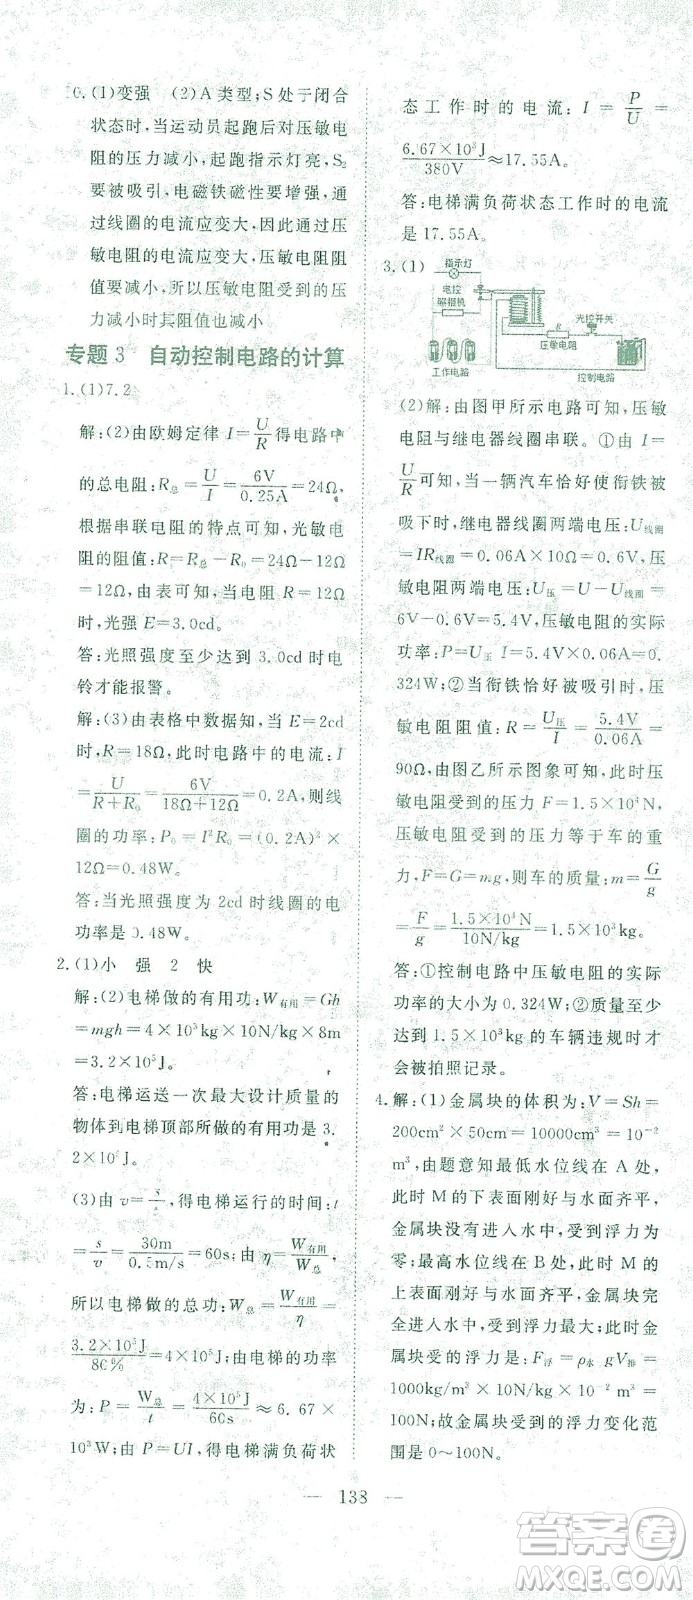 6.(1)变强 (2)A 类型;S处于闭合
状态时,当运动员起跑后对压敏电
阻的压力减小,起跑指示灯亮,S₂
要被吸引,电磁铁磁性要增强,即
过线圈的电流应变大,因此通过压
敏电阻的电流变大,压敏电阻阻值
要减小,所以压敏电阻受到的压
力减小时其阻值也减小
专题 3 自动控制电路的计算
1.(1)7.2
解:(2)由欧姆定律 I=U/R得电路中
的总电阻:R总=U/I=6V/0.25A=24Ω,
根据串联电阻的特点可知,光敏电
阻的阻值:R=R总-R₀=24Ω-12Ω
=12Ω,由表可知,当电阻 R=12Ω
时,光强 E=3.0cd。
答:光照强度至少达到 3.0cd 时电
铃才能报警。
解:(3)由表格中数据知,当 E=2cd
时,R=18Ω,此时电路中的电流:I
=U/(R+R₀)=6V/(18Ω+12Ω)=0.2A,则线
圈的功率:P₀=I²R₀=(0.2A)²×
12Ω=0.48W。
答:当光照强度为 2cd 时线圈的电
功率是 0.48W。
2.(1)小 强 2 快
解:(2)电梯做的有用功:W有用=Gh
=mgh=4×10³kg×10N/kg×8m
=3.2×10⁵J。
答:电梯运送一次最大设计质量的
物体到电梯顶部所做的有用功是 3.
2×10⁵J。
(3)由 v=s/t,得电梯运行的时间:t
=s/v=30m/0.5m/s=60s;由 η=W有用/W总
所以电梯做的总功:W总=W有用/η=
3.2×10⁵J/80%=4×10⁵J;电梯的功率
为:P=W总/t=4×10⁵J/60s≈6.67×
10³W;由 P=UI,得电梯满负荷状
态工作时的电流:I=P/U=
6.67×10³J/380V≈17.55A。
答:电梯满负荷状态工作时的电流
是 17.55A。
3.(1)
指示灯
电控
照相机
光控开关
R
压敏电阻
工作电路
控制电路
(2)解:由图甲所示电路可知,压敏
电阻与继电器线圈串联。①由 I=
U/R可知,当一辆汽车恰好使衔铁被
吸下时,继电器线圈两端电压:U线圈
=IR线圈=0.06A×10Ω=0.6V,压
敏电阻两端电压:U压=U-U线圈=
6V-0.6V=5.4V,压敏电阻的实际
功率:P=U压I=5.4V×0.06A=0.
324W;②当衔铁恰好被吸引时,压
敏电阻阻值:R=U压/I=5.4V/0.06A=
90Ω,由图乙所示图象可知,此时压
敏电阻受到的压力 F=1.5×10⁴N,
压敏电阻受到的压力等于车的重
力,F=G=mg,则车的质量:m=G/g
=F/g=1.5×10⁴N/10N/kg=1.5×10³kg。
答:①控制电路中压敏电阻的实际
功率的大小为 0.324W;②质量至少
达到 1.5×10³kg 的车辆违规时才
会被拍照记录。
4.解:(1)金属块的体积为:V=Sh=
200cm²×50cm=10000cm³=10⁻²
m³,由题意知最低水位线在 A 处,
此时 M 的下表面刚好与水面齐平,
金属块没有进入水中,受到浮力为
零;最高水位在 B 处,此时 M 的
上表面刚好与水面齐平,金属块完
全进入水中,受到浮力最大,此时
金属块受到的浮力:F浮=ρ水gV排=
1000kg/m³×10N/kg×10⁻²m³=
100N;故金属块受到的浮力变化范
围是 0~100N。
— 138 —
答案圈
MXQE.COM